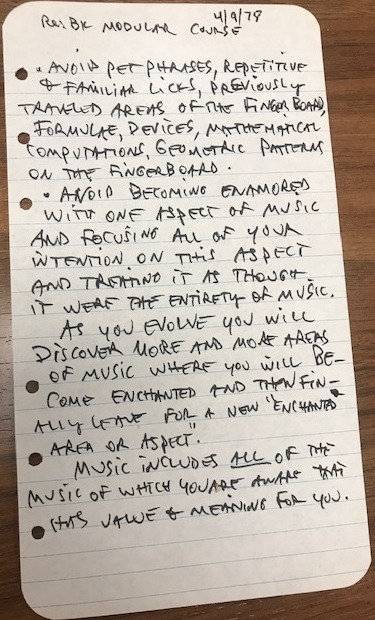 Re: BK MODULAR COURSE 4/9/78
• AVOID PET PHRASES, REPETITIVE
& FAMILIAR LICKS, PREVIOUSLY
TRAVELED AREAS OF THE FINGERBOARD,
FORMULAE, DEVICES, MATHEMATICAL
COMPUTATIONS, GEOMETRIC PATTERNS
ON THE FINGERBOARD.
• AVOID BECOMING ENAMORED
WITH ONE ASPECT OF MUSIC
AND FOCUSING ALL OF YOUR
INTENTION ON THIS ASPECT
AND TREATING IT AS THOUGH
IT WERE THE ENTIRETY OF MUSIC.
AS YOU EVOLVE YOU WILL
DISCOVER MORE AND MORE AREAS
OF MUSIC WHERE YOU WILL BE-
COME ENCHANTED AND THEN FIN-
ALLY LEAVE FOR A NEW "ENCHANTED
AREA OR ASPECT".
MUSIC INCLUDES ALL OF THE
MUSIC OF WHICH YOU ARE AWARE THAT
HAS VALUE & MEANING FOR YOU.